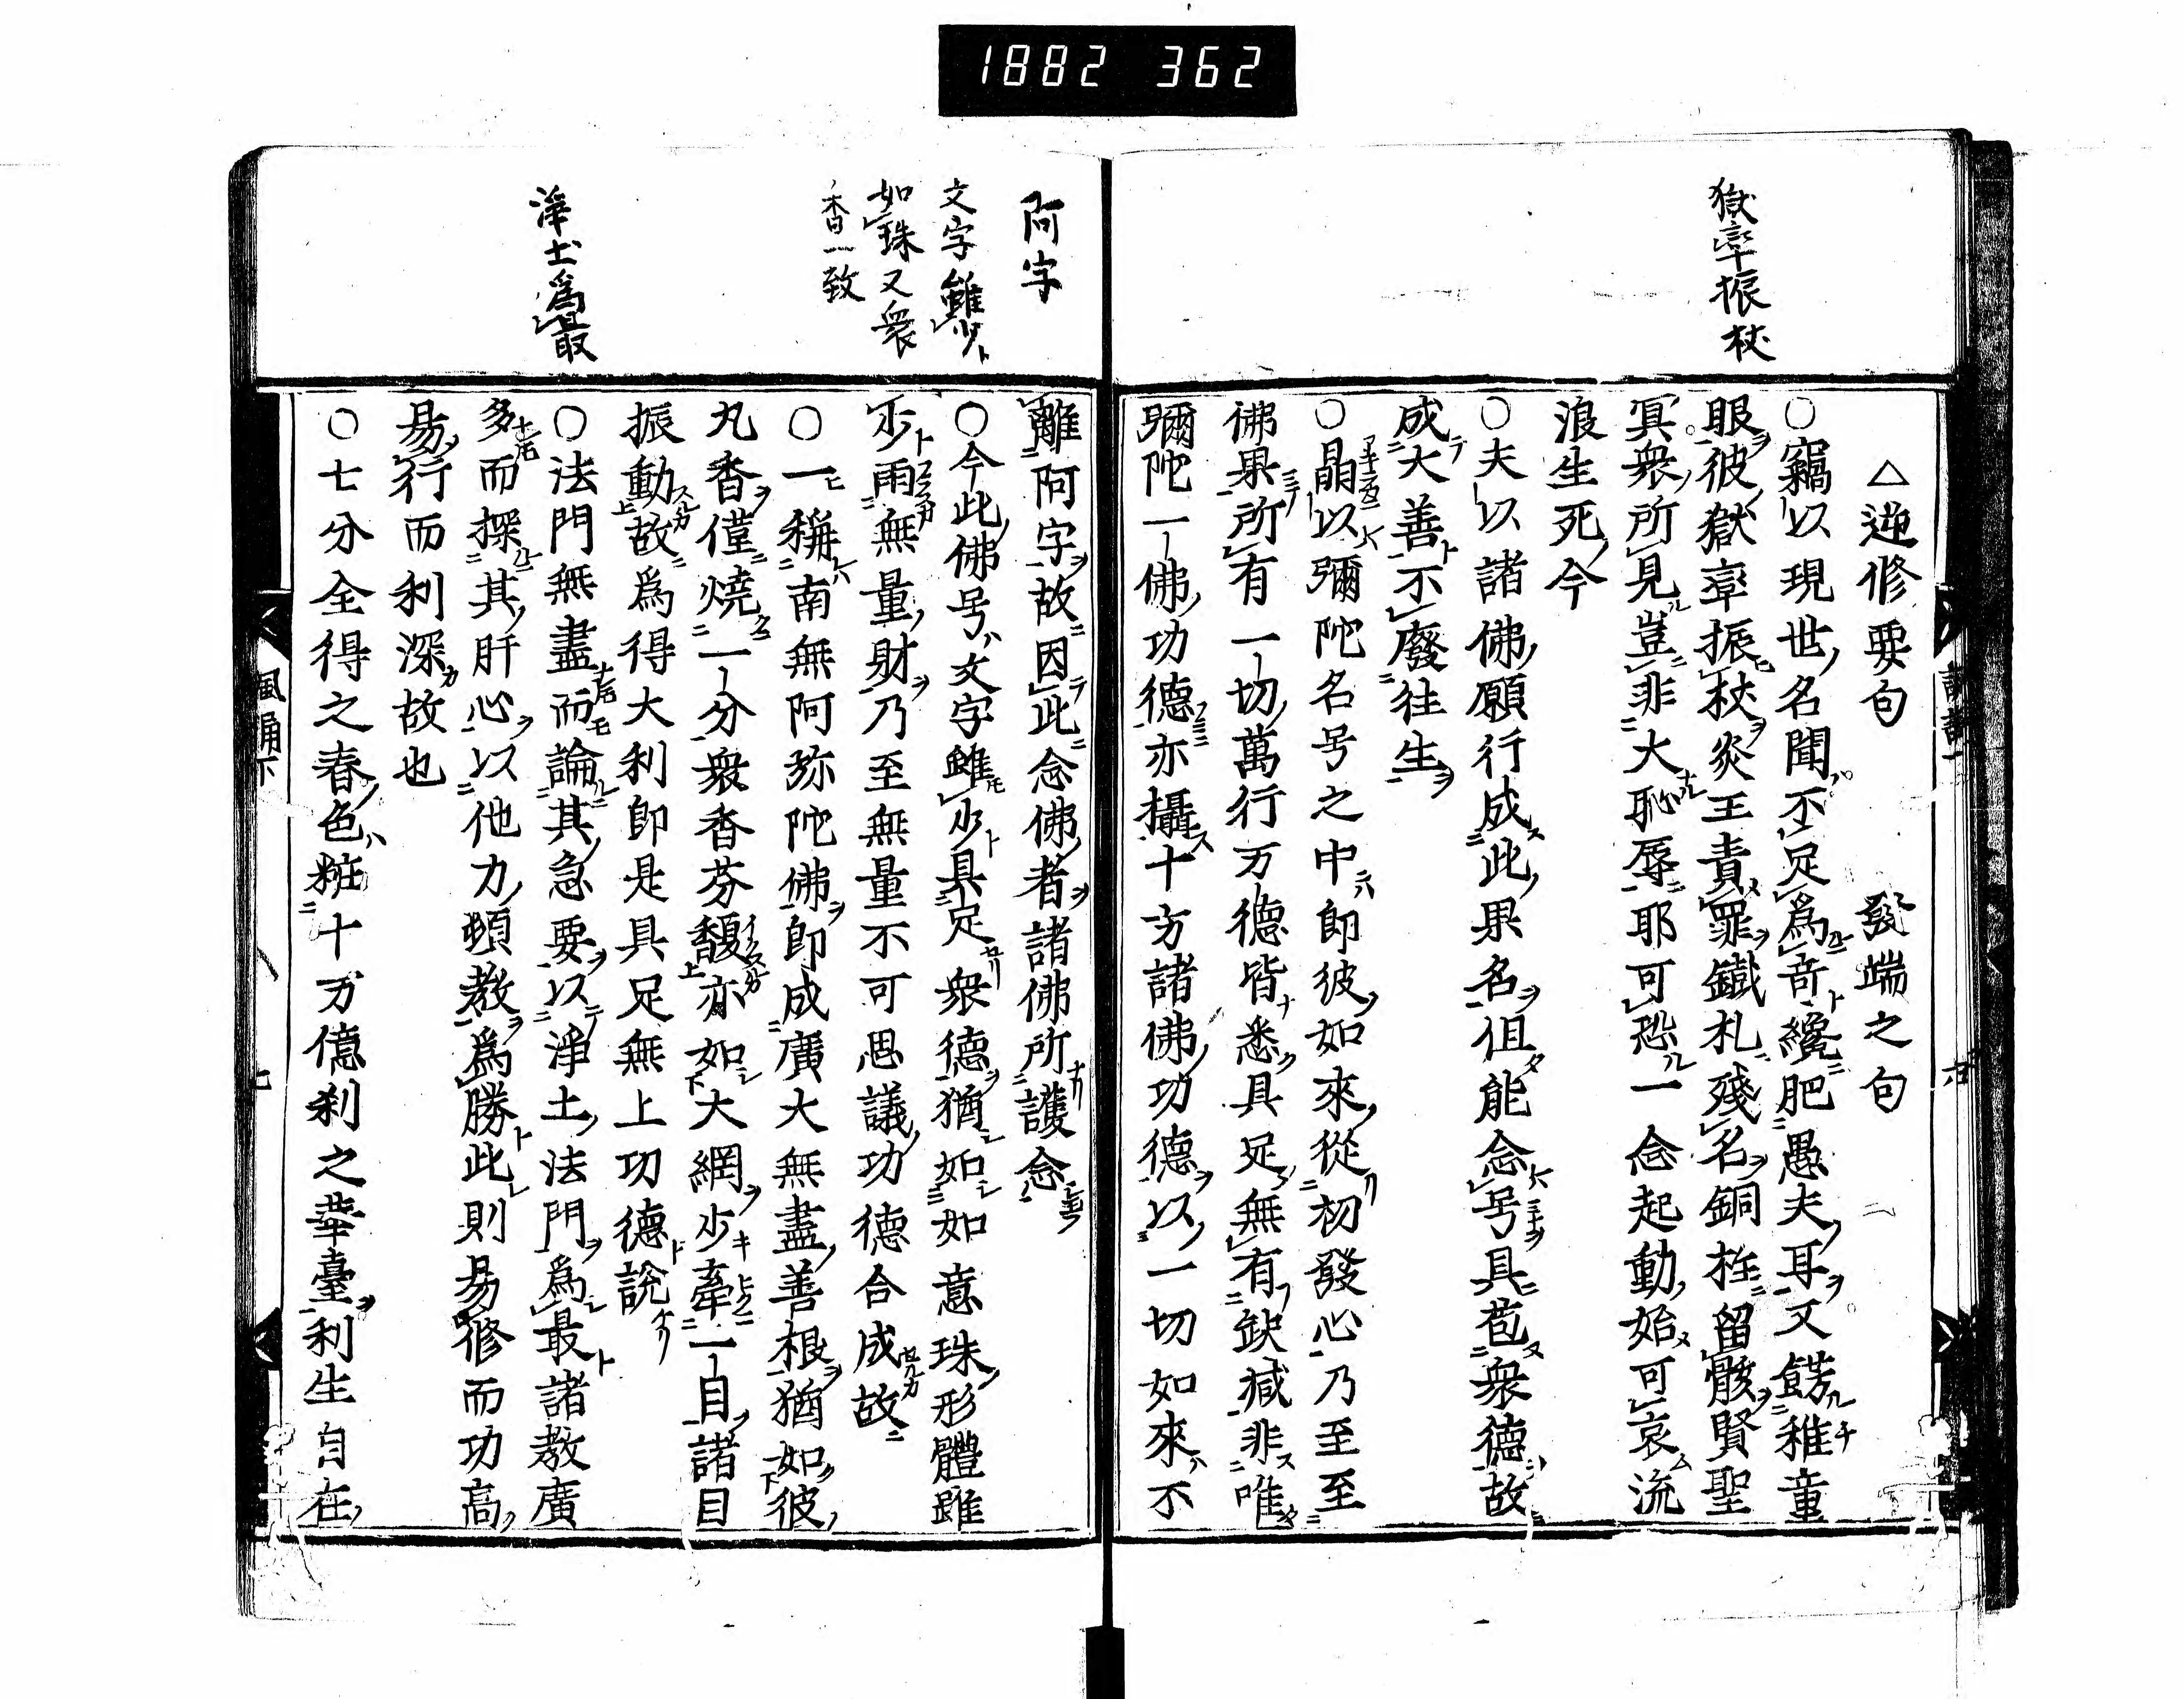 1882 362
獄率振杖
△逆修要句　發端之句
○竊以現世名聞不足為奇纔肥愚夫耳又餝稚童
眼彼獄率振杖炎王責罪鐵札殘名銅柱留骸賢聖
冥衆所見豈非大恥辱耶可恐一念起動始可哀流
浪生死今
○夫以諸佛願行成此果名但能念号具苞衆德故
成大善不廢往生
○晶以彌陀名号之中即彼如來從初發心乃至至
佛果所有一切萬行万德皆悉具足無有缺減非唯
彌陀一佛功德亦攝十方諸佛功德以一切如來不
阿字
文字雖少
如珠又衆
香一致
淨土為最
離阿字故因此念佛者諸佛所護念
○今此佛号文字雖少具足衆德猶如如意珠形體雖
少雨無量財乃至無量不可思議功德合成故
○一稱南無阿弥陀佛即成廣大無盡善根猶如彼
丸香僅燒一分衆香芬馥亦如大網少牽一目諸目
振動故為得大利即是具足無上功德說
○法門無盡而論其急要以淨土法門為最諸教廣
多而探其肝心以他力頓教為勝此則易修而功高
易行而利深故也
○七分全得之春色粧十万億刹之華臺利生自在
風誦下
七